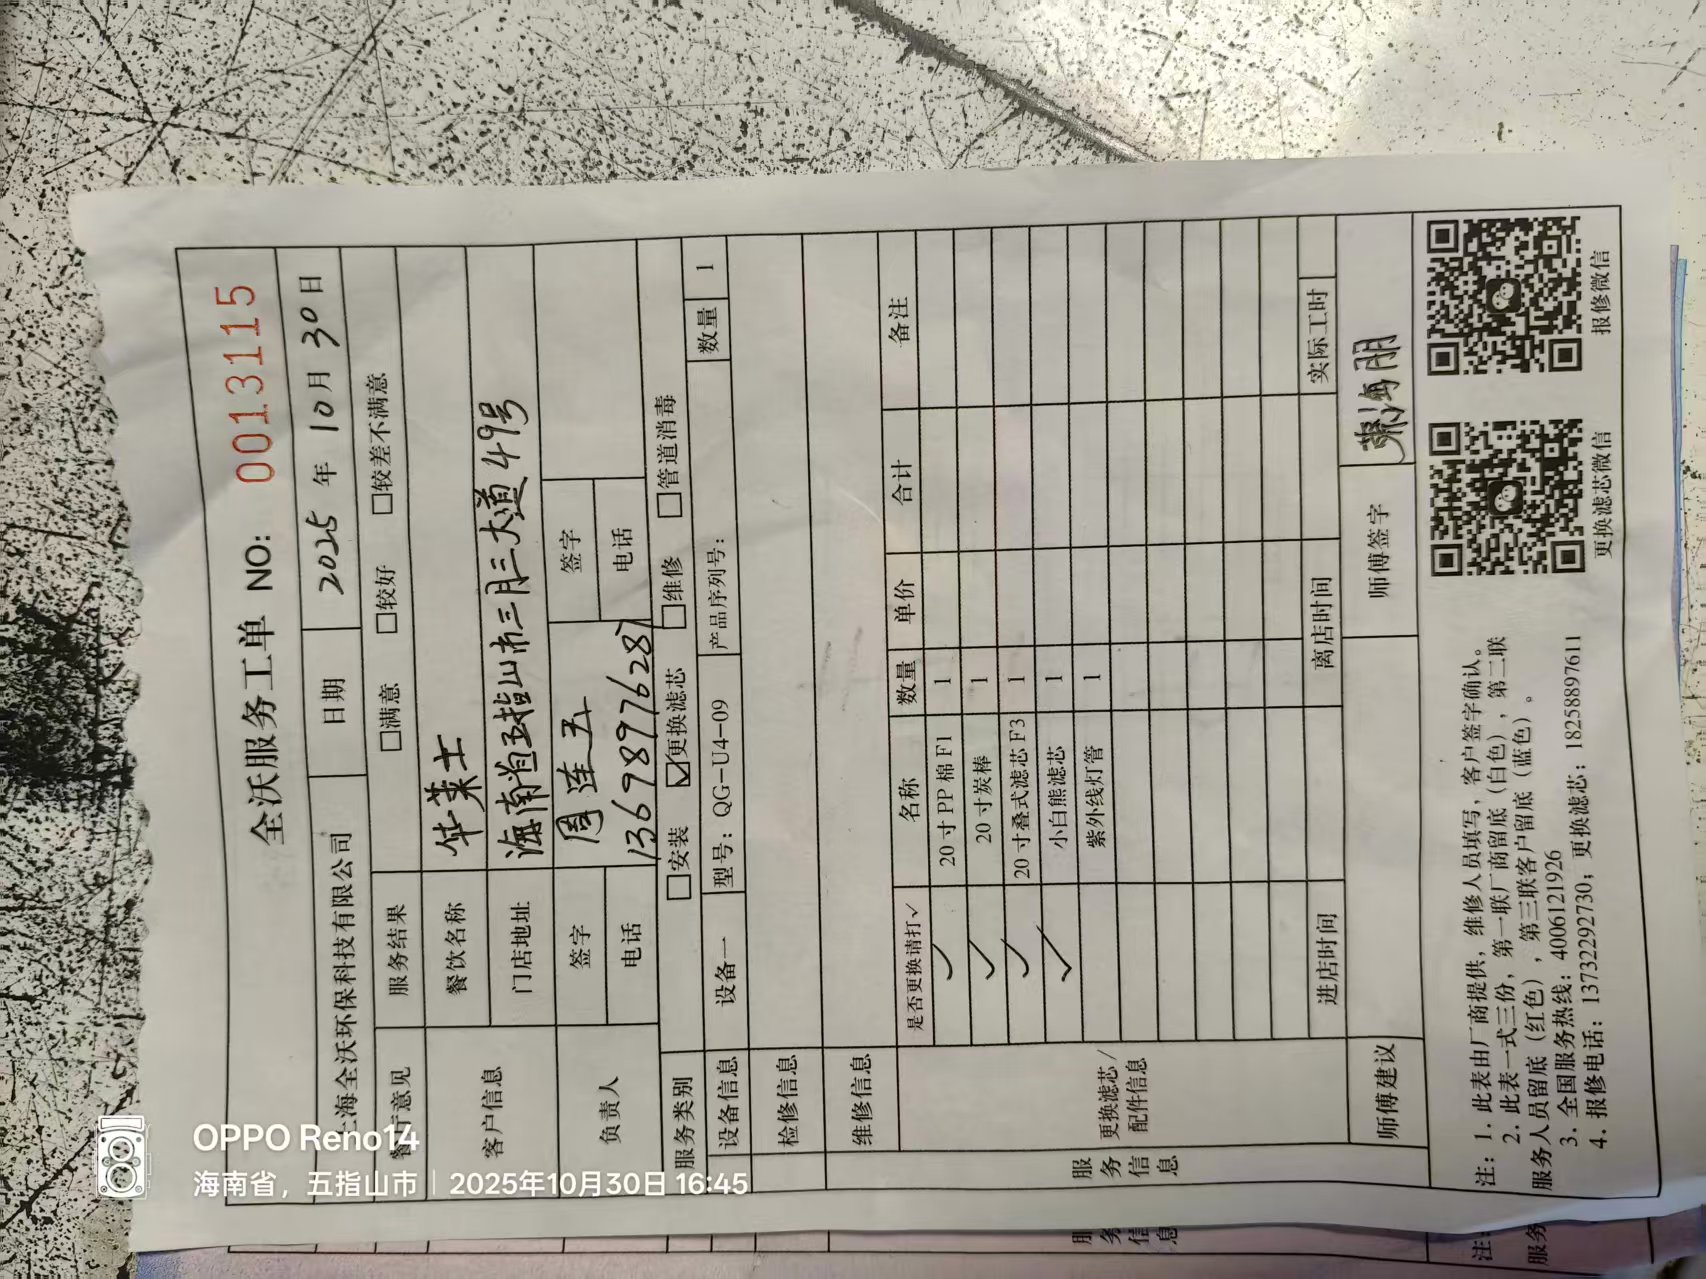 全沃服务工单 NO: 0013115
上海全沃环保科技有限公司 日期 2025年10月30日
餐厅意见 服务结果 □满意 □较好 □较差不满意
客户信息 餐饮名称 华莱士
门店地址 海南省五指山市三月三大道49号
负责人 签字 周连五 签字
电话 13698976287 电话
服务类别 □安装 ☑更换滤芯 □维修 □管道消毒
设备信息 设备一 型号：QG-U4-09 产品序列号： 数量 1
检修信息
服务信息
维修信息
更换滤芯/配件信息
是否更换请打✓ 名称 数量 单价 合计 备注
✓ 20寸PP棉F1 1
✓ 20寸炭棒 1
✓ 20寸叠式滤芯F3 1
✓ 小白熊滤芯 1
紫外线灯管 1
进店时间 离店时间 实际工时
师傅建议 师傅签字 海朋
注：1. 此表由厂商提供，维修人员填写，客户签字确认。
2. 此表一式三份，第一联厂商留底（白色），第二联
服务人员留底（红色），第三联客户留底（蓝色）。
3. 全国服务热线：4006121926
4. 报修电话：13732292730；更换滤芯：18258897611
更换滤芯微信 报修微信
服务信息
注：
服务
OPPO Reno14
海南省，五指山市 | 2025年10月30日 16:45